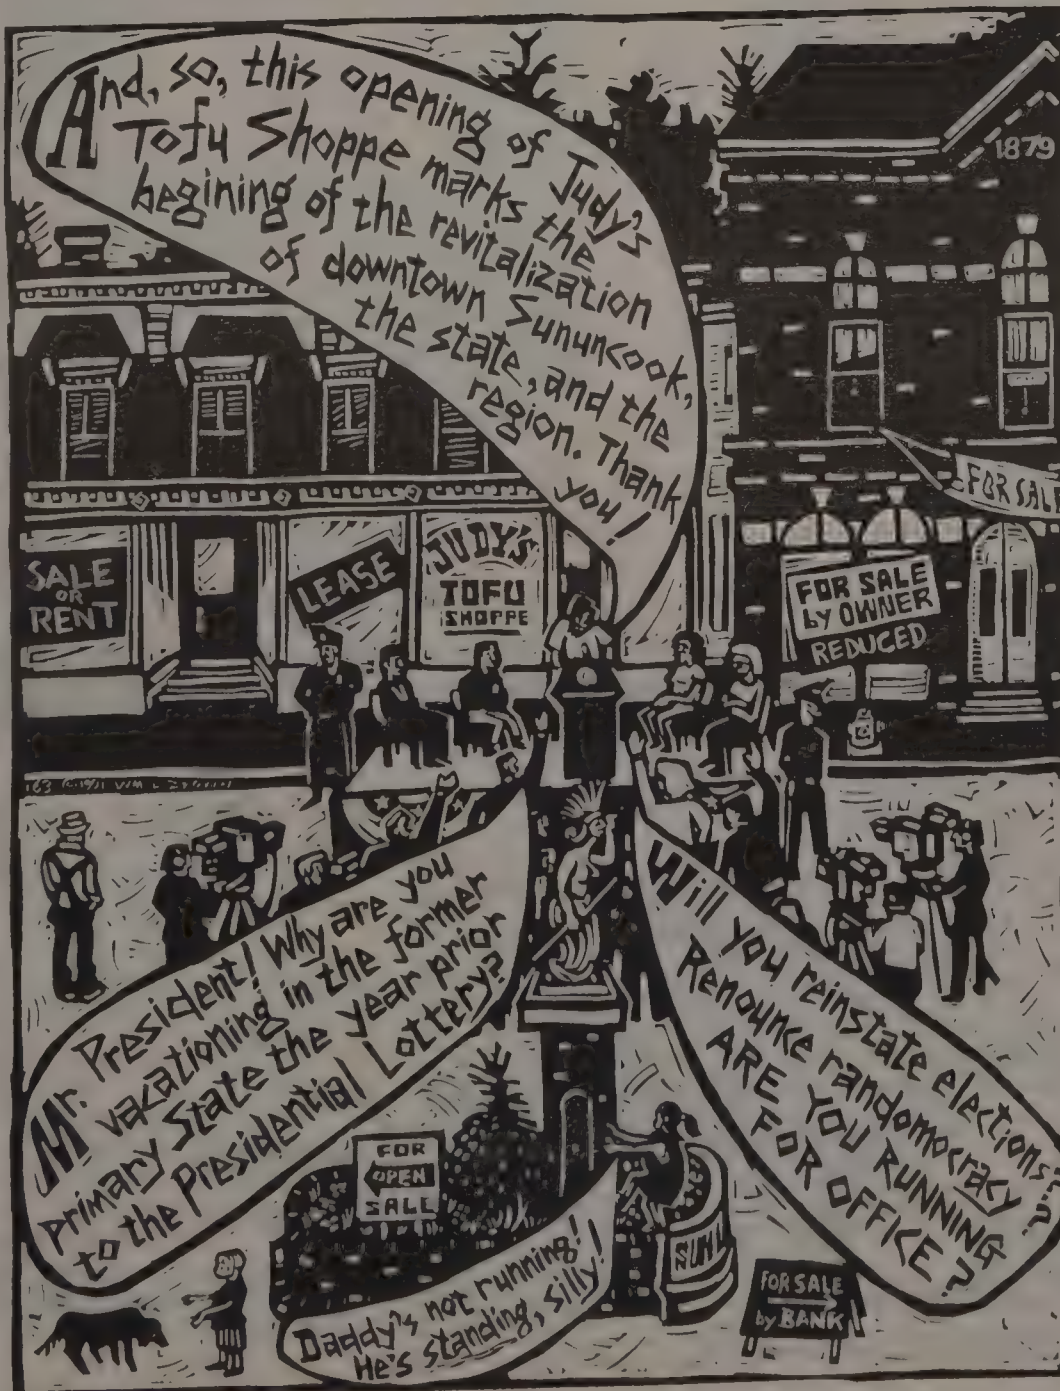 And, so, this opening of Judy's
Tofu Shoppe marks the
begining of the revitalization
of downtown Sununcook,
the state, and the
region. Thank
you!
1879
FOR SALE
SALE
OR
RENT
LEASE
JUDY'S
TOFU
SHOPPE
FOR SALE
by OWNER
REDUCED
Mr. President! Why are you
vacationing in the former
primary State the year prior
to the Presidential Lottery?
Will you reinstate elections?
Renounce randomocracy?
ARE YOU RUNNING
FOR OFFICE?
FOR
OPEN
SALE
Daddy's not running!
He's standing, silly!
SUNU
FOR SALE
by BANK